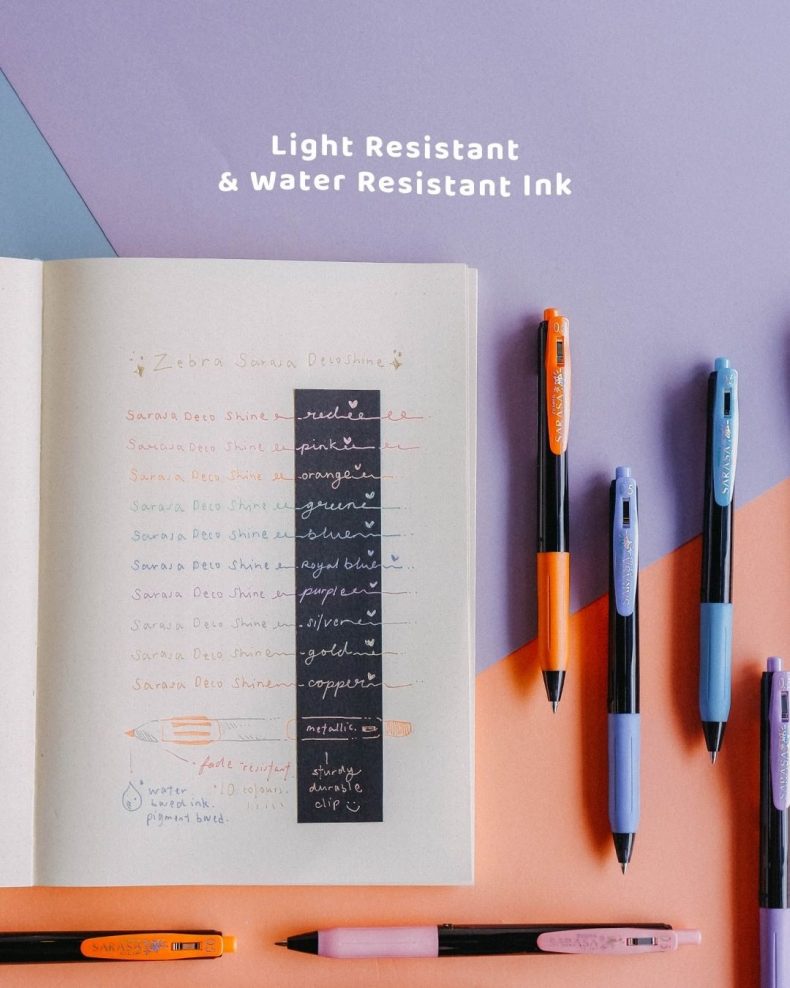 Light Resistant
& Water Resistant Ink
Zebra Sarasa Decoshine
Sarasa Deco Shine red
Sarasa Deco Shine pink
Sarasa Deco Shine orange
Sarasa Deco Shine green
Sarasa Deco Shine blue
Sarasa Deco Shine Royal blue
Sarasa Deco Shine purple
Sarasa Deco Shine silver
Sarasa Deco Shine gold
Sarasa Deco Shine copper
metallic.
fade resistant
sturdy
durable
clip
10 colours.
water
based ink.
pigment based.
SARASA
SARASA
SARASA
SARASA
SARASA